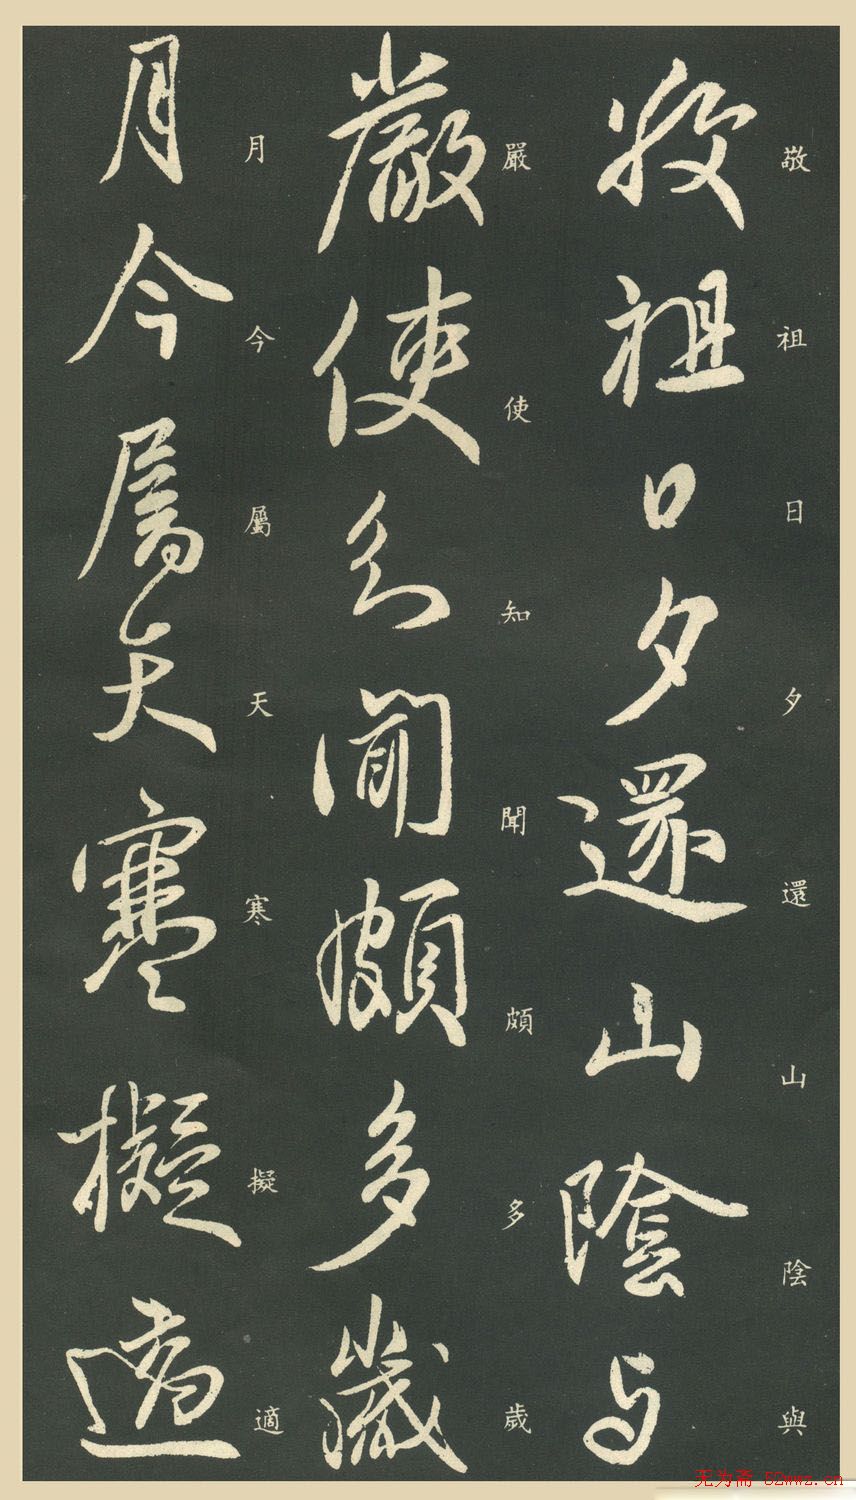 敬祖日夕還山陰與
敬祖日夕還山陰與
嚴使知聞頗多歲
嚴使知聞頗多歲
月今屬天寒擬適
月今屬天寒擬適
无为斋 52wwz.cn